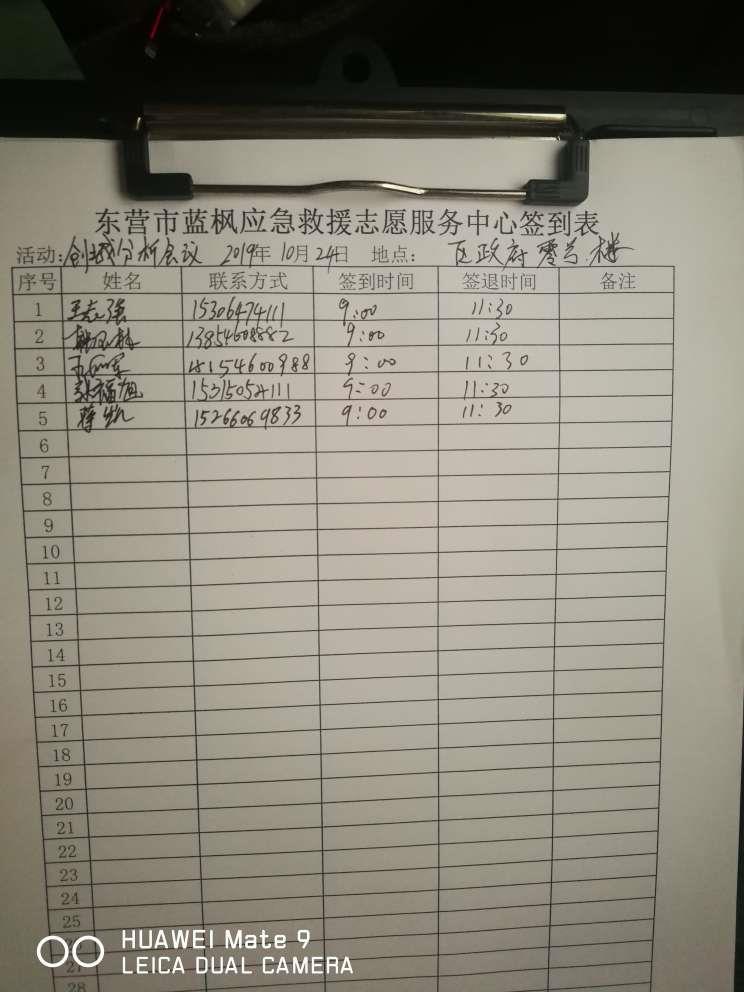 东营市蓝枫应急救援志愿服务中心签到表
活动: 创城分析会议 2019年 10月 24日 地点: 区政府零号楼
序号 姓名 联系方式 签到时间 签退时间 备注
1 王志强 15306474111 9:00 11:30
2 13854608882 9:00 11:30
3 18154600988 9:00 11:30
4 张福旭 15315054111 9:00 11:30
5 蒋凯 15266069833 9:00 11:30
6
7
8
9
10
11
12
13
14
15
16
17
18
19
20
21
22
23
24
25
27
28
HUAWEI Mate 9
LEICA DUAL CAMERA